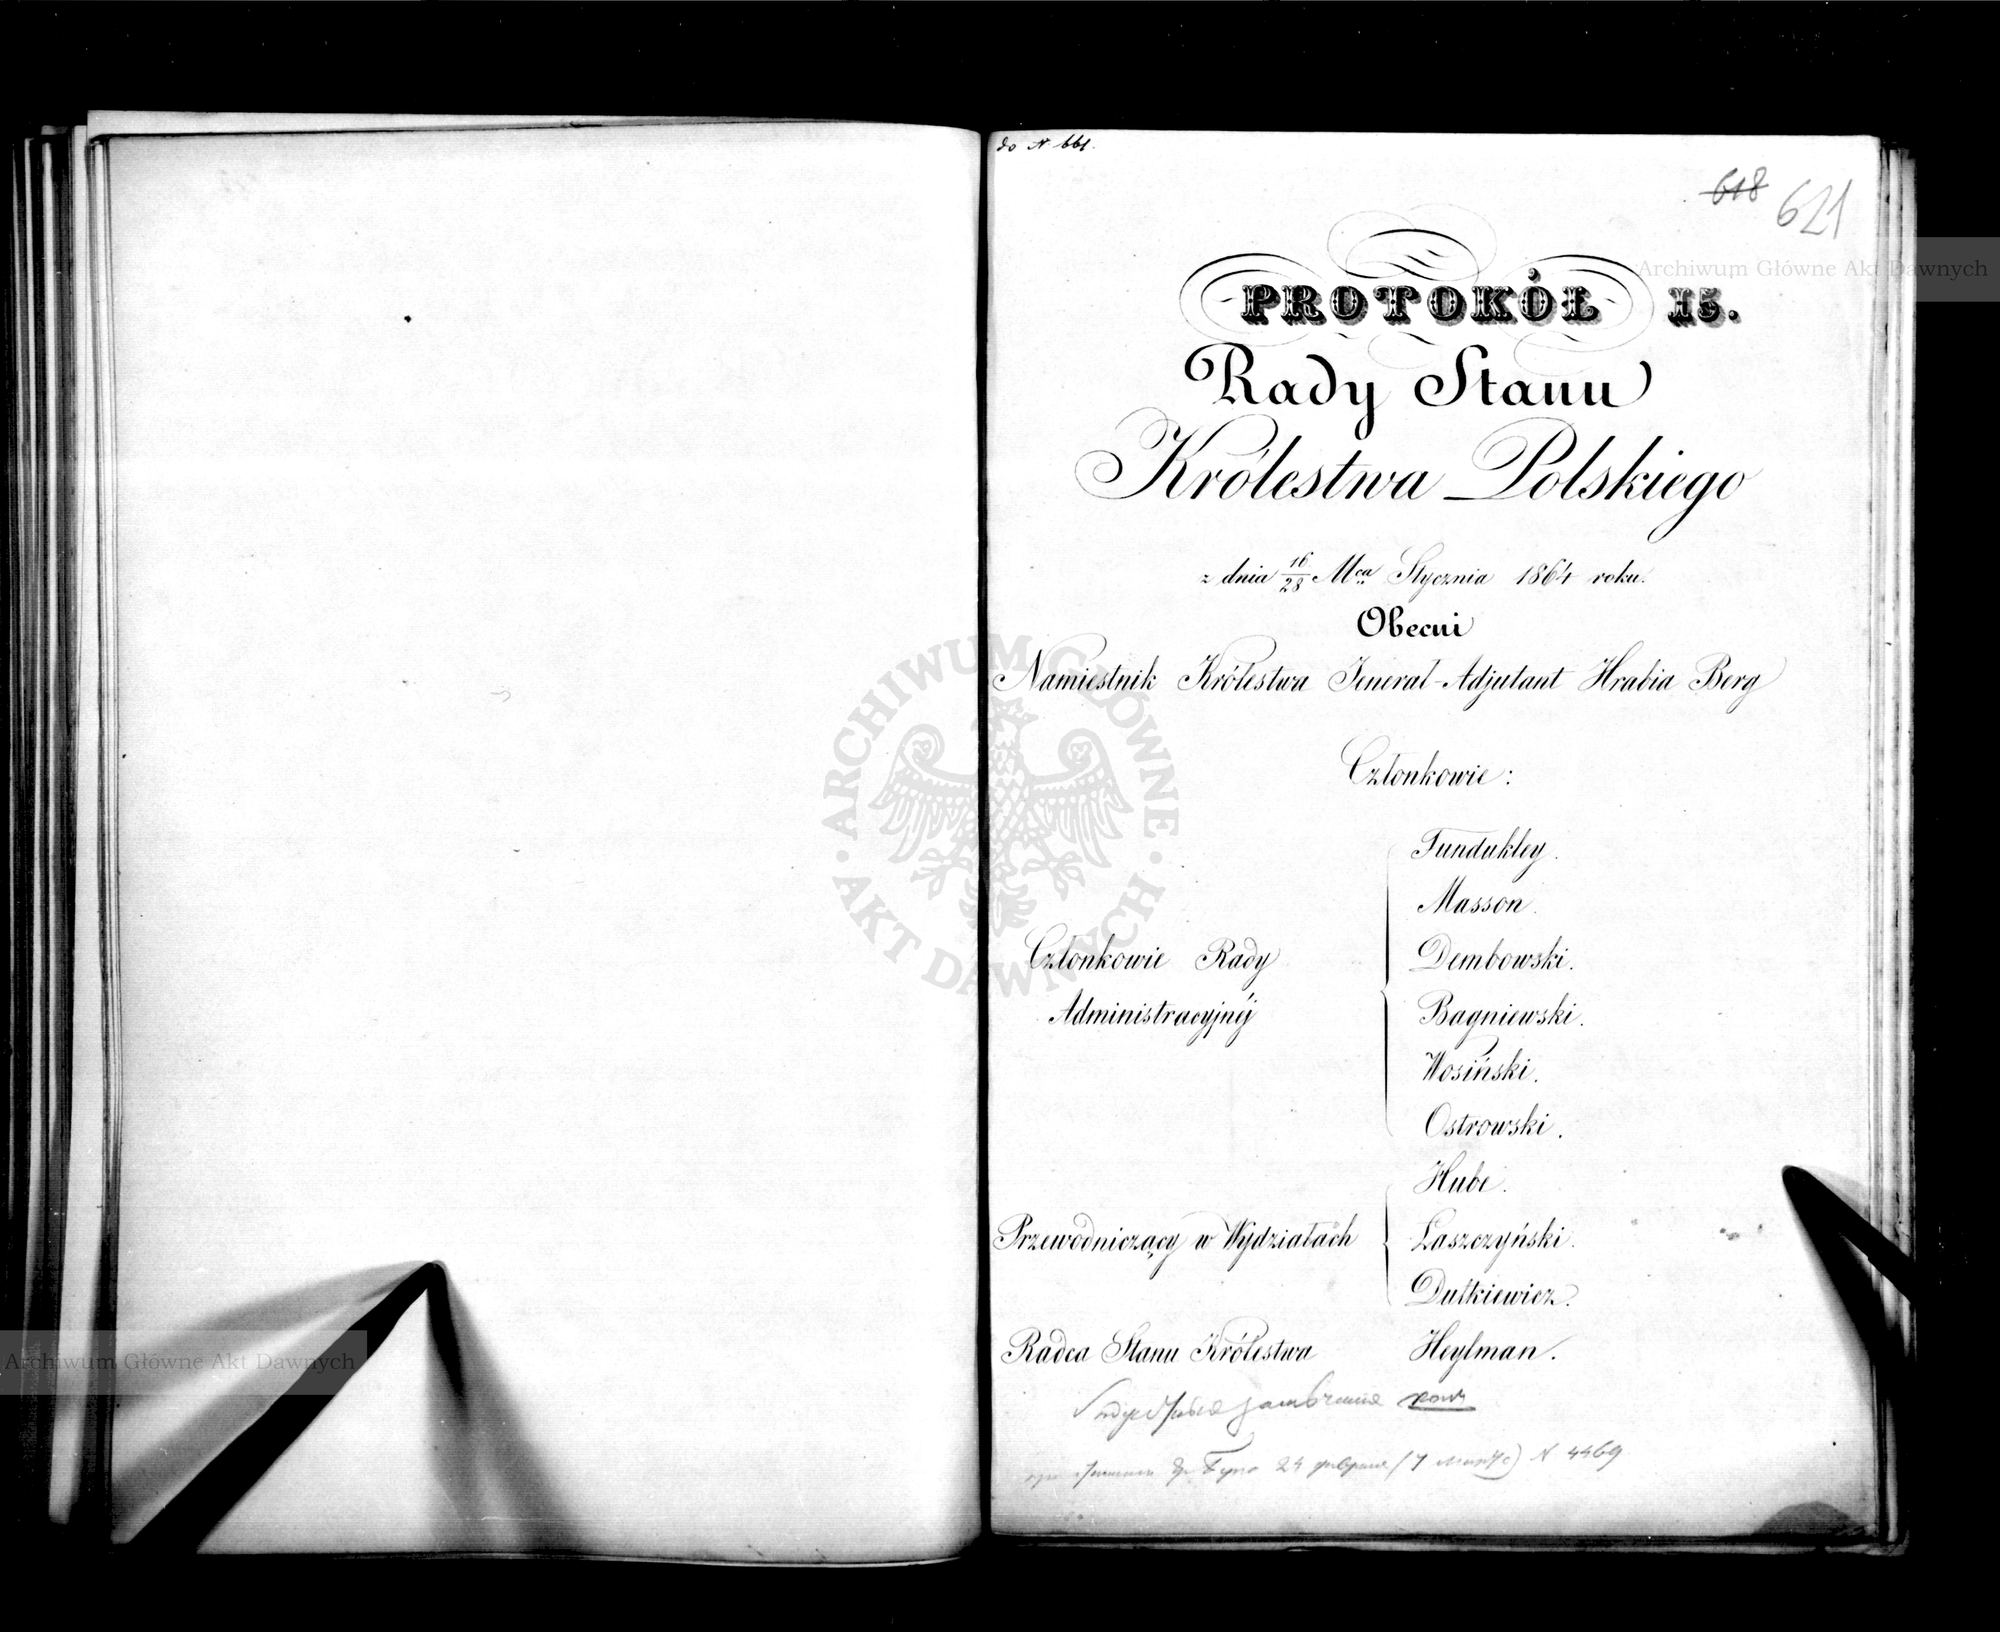 do N 661.
618 621
PROTOKÓŁ 15.
Rady Stanu
Królestwa Polskiego
z dnia 16/28 Mca Stycznia 1864 roku.
Obecni
Namiestnik Królestwa Jenerał-Adjutant Hrabia Berg
Członkowie:
Członkowie Rady
Administracyjnéj
Fundukley.
Masson.
Dembowski.
Bagniewski.
Wosiński.
Ostrowski.
Przewodniczący w Wydziałach
Hube.
Łaszczyński.
Dutkiewicz.
Radca Stanu Królestwa Heylman.
24 (7 N 4469
Archiwum Główne Akt Dawnych
Archiwum Główne Akt Dawnych
ARCHIWUM GŁÓWNE AKT DAWNYCH